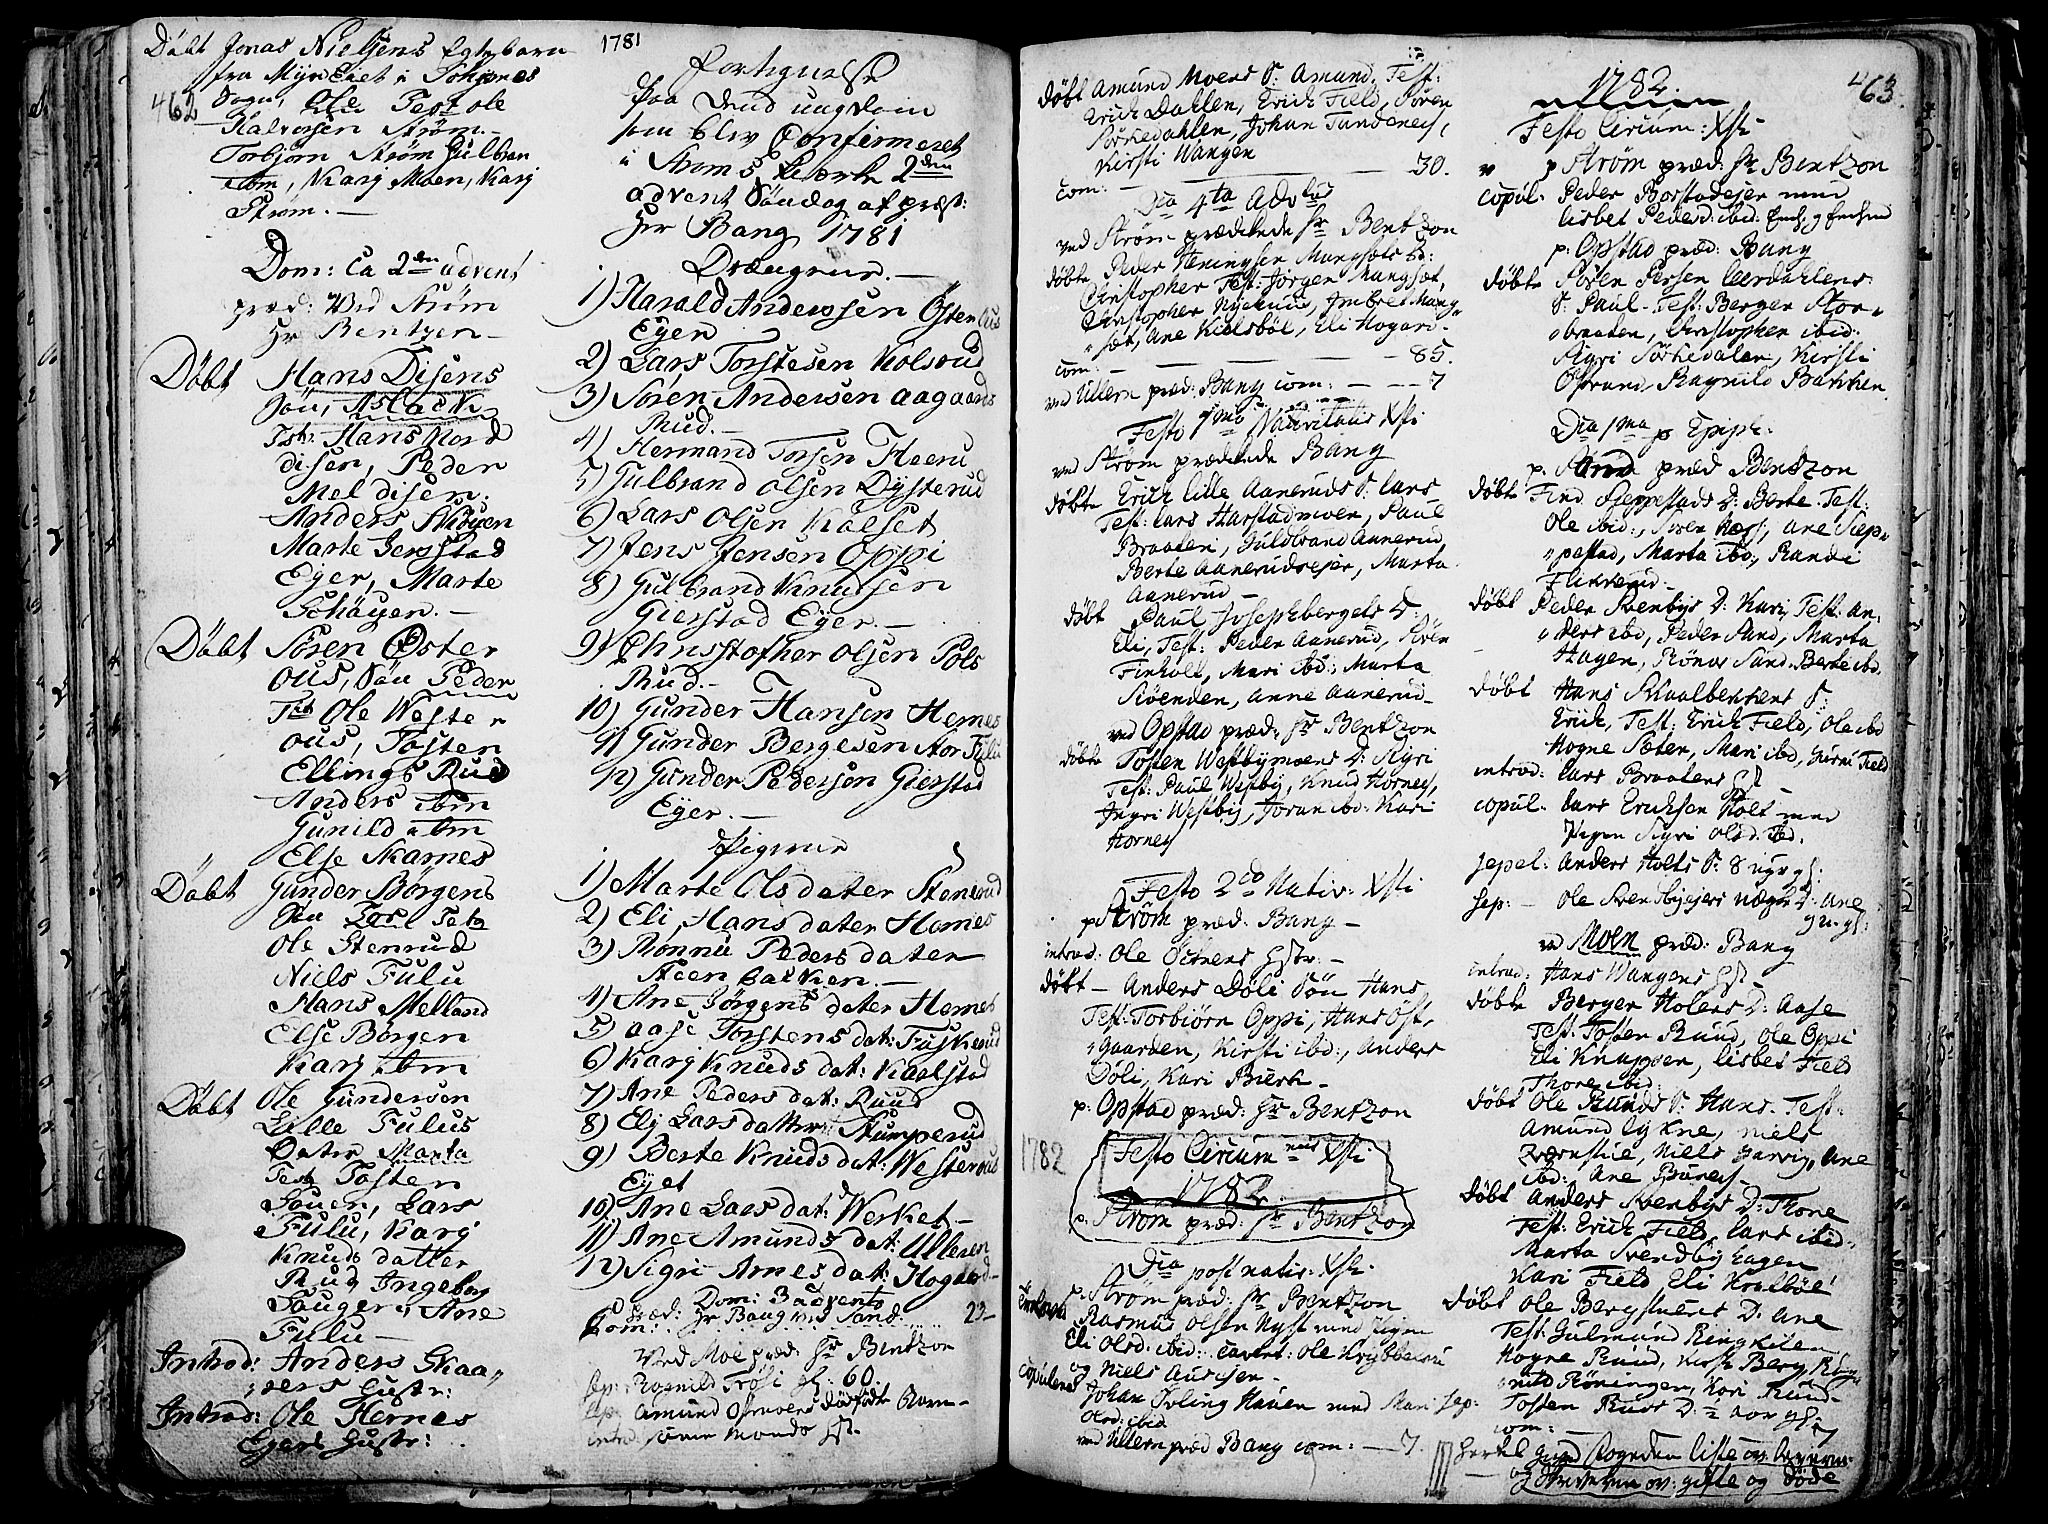 Døbt Jonas Nielsens Egtebarn
fra Myr Eiet i
462 Sogn, Ole Test Ole
Halvorsen Strøm.
Torbjørn Strøm Gulbran
ibm, Karj Moen, Karj
Strøm. —
Dom: Ca 2den advent
præd: Ved Strøm
Hr Bentzen —
Døbt Hans Disens
Søn, Aslack
Test: Hans Nord
disen, Peder
Mel disen.
Anders Skøyen
Marte Gerstad
Eyer, Marte
Schøyen. —
Døbt Sören Øster
ous, Søn Peder
Test Ole Wester
ous, Tosten
Ellings Rud
Anders ibm
Gunild ibm
Else Skarnes
Døbt Gunder Børgens
Søn Lars Test
Ole Stenrud
Niels Fulu
Hans Melland
Else Børgen
Karj ibm
Døbt Ole Gundersen
Lille Fulus
Dater Marta
Test Tosten
Sauer, Lars
Fulu, Karj
Knuds datter
Rud Ingeborg
Sauger, Ane
Fulu —
Introd: Anders Skaa„
„rers Hustr:
Introd: Ole Hernes
Eyers Hustr:
1781
Fortegnelse
paa dend ungdom
som blev Confirmeret
i Strøms Kierke 2den
advent Søndag af præst:
Hr Bang 1781
Drængene. —
1) Harald Anderssen Østenous
Eyer
2) Lars Torstesen Kolsrud
3) Sören Andersen aagaards
Rud. —
4) Hermand Torsen Heeru
5) Gulbrand Olsen Dysterud
6) Lars Olsen Kalset
7) Jens Jensen Oppi
8) Gulbrand Knudsen
Gierstad Eyer. —
9) Christopher Olsen Pols
Rud. —
10) Gunder Hansen Hernes
11) Gunder Bergesen Stor Fulu
12) Gunder Pedersen Gierstad
Eyer. —
Pigerne
1) Marte Olsdater Stensrud
2) Eli Hansdater Hornes
3) Rønnu Peders dater
Steen bakken. —
4) Ane Børgens dater Hernes
5) Aase Torstens dat: Fuskerud
6) Karj Knuds dat: Kaalstad
7) Ane Peders dat: Ruud
8) Elj Lars datter Rumperud
9) Berte Knuds dat: Westerous
Eyet
10) Ane Lars dat: Werket —
11) Ane Amunds dat: Ulleren
12) Sigri Arnes dat: Hogaard —
Dom: 3 advents
Præd: Hr Bang ved Sand.
Com: 23 —
Ved Moe præd: Hr Bentzon
Sep: Rognild Trøsi gl: 60.
Sep: Amund dødfødte Barn —
introd:
463.
Døbt Amund Moens S: Amund. Test:
Erich Dahlen, Erich Field, Sören
Sørkedahlen, Johan Tundeney,
Kirsti Wangen
Com: — 30.
Dca 4ta Advtus
ved Strøm prædikede Hr Bentzon
døbte Peder Heningsen Mangsets S:
Christopher Test: Jörgen Mangset,
Christopher Nyckuus, Imbret Mang„
„set, Ane Kielsbøl, Eli Hogari —
com: — 85.
ved Ullern præd: Bang com: — 7
Festo 1mo Nativitatis Xsti
ved Strøm prædikede Bang
døbte Erich lille Aaneruds S: Lars
Test: Lars Harstadmoen, Paul
Braaten, Guldbrand Aanerud
Berte Aanerudseyer, Marta
Aanerud —
døbt Paul Josephbergets D.
Eli, Test: Peder Aanerud, Sören
Finholt, Mari ibd: Marta
Skönden, Anne Aanerud —
ved Opstad præd: Hr Bentzon
døbte Tosten Westbymoens D: Sigri
Test: Paul Westby, Knud Horney,
Ingri Westby, Joran ibd: Kari
Horney
Festo 2do Nativ: Xsti
p Strøm præd: Bang —
introd: Ole hstr: —
døbt — Anders Döli Søn Hans
Test: Torbiörn Oppi, Hans Öst„
„Gaarden, Kirsti ibd:, Anders
Döli, Kari Biørk —
p: Opstad præd: Hr Bentzon
1782
Festo Circumcis Xsti
1782
p. Strøm præd: Hr Bentzon
Dca post nativ: Xsti.
p. Strøm præd: Hr Bentzon
Rasmus Olsen Nyst med Pigen
Eli Olsd: ibid: cavert: Ole
og Niels Aursen —
copuleret Johan Irling Hauen med Mari
Olsd: ibid.
ved Ullern præd Bang com: — 7.
1782.
Festo Circum: Xsti
p Strøm præd: Hr Bentzon
copul: Peder Borstadejer med
Lisbet Pedersd: ibid:
p: Opstad præd: Bang
døbte Sören Persen Leerdahlens
S: Paul — Test: Berger Stor„
„braaten, Christopher ibid:
Sigri Sörkedalen, Kirsti
Ragnild Bakken.
Dca 1ma p Epiph:
p. Sand præd Bentzon
døbte Find Seppestads D: Berte Test:
Ole ibid:, Sören Næss, Ane Sep„
„pestad, Marta ibd:, Randi
Flikkerud —
døbt Peder Svenbys D: Kari, Test: An„
„ders ibd, Peder Sand, Marta
Hagen, Rönas Sand, Berte ibd.
døbt Hans Skaalberkens S:
Erich, Test: Erich Field, Ole ibd
Hogne Sæter, Mari ibd, Guru Field
introd: Lars Braatens hst —
copul: Lars Ericksen Holt med
Pigen Sigri Olsd: ibd.
sepel: Anders Holts S: 8 ugr gl:
Sep: — Ole Svendbyejers D: Ane
9 u. gl:
ved Moen præd: Bang
introd: Hans Wangens hst —
døbte Berger Holens D: Aase
Test: Tosten Ruud, Ole Oppi
Eli Knappen, Lisbet Field
Thore ibid:
døbt Ole Ruuds S: Hans. Test:
Amund Lykne, Niels
Niels Barvig, Ane
ibd: Ane Buney —
døbt Anders Svenbys D: Thone
Test: Erich Field, Lars ibid,
Marta Svendby hagen
Kari Field Eli Kralböl
døbt Ole Bergstuens D: Ane
Test: Gulmund Ringkilen
Hogne Ruud, Kirsti Berg, Rag„
„nild Röningen, Kari Ruud
sep: Tosten Ruds D: ½ aar gl:
com: — 7
og gifte og døde